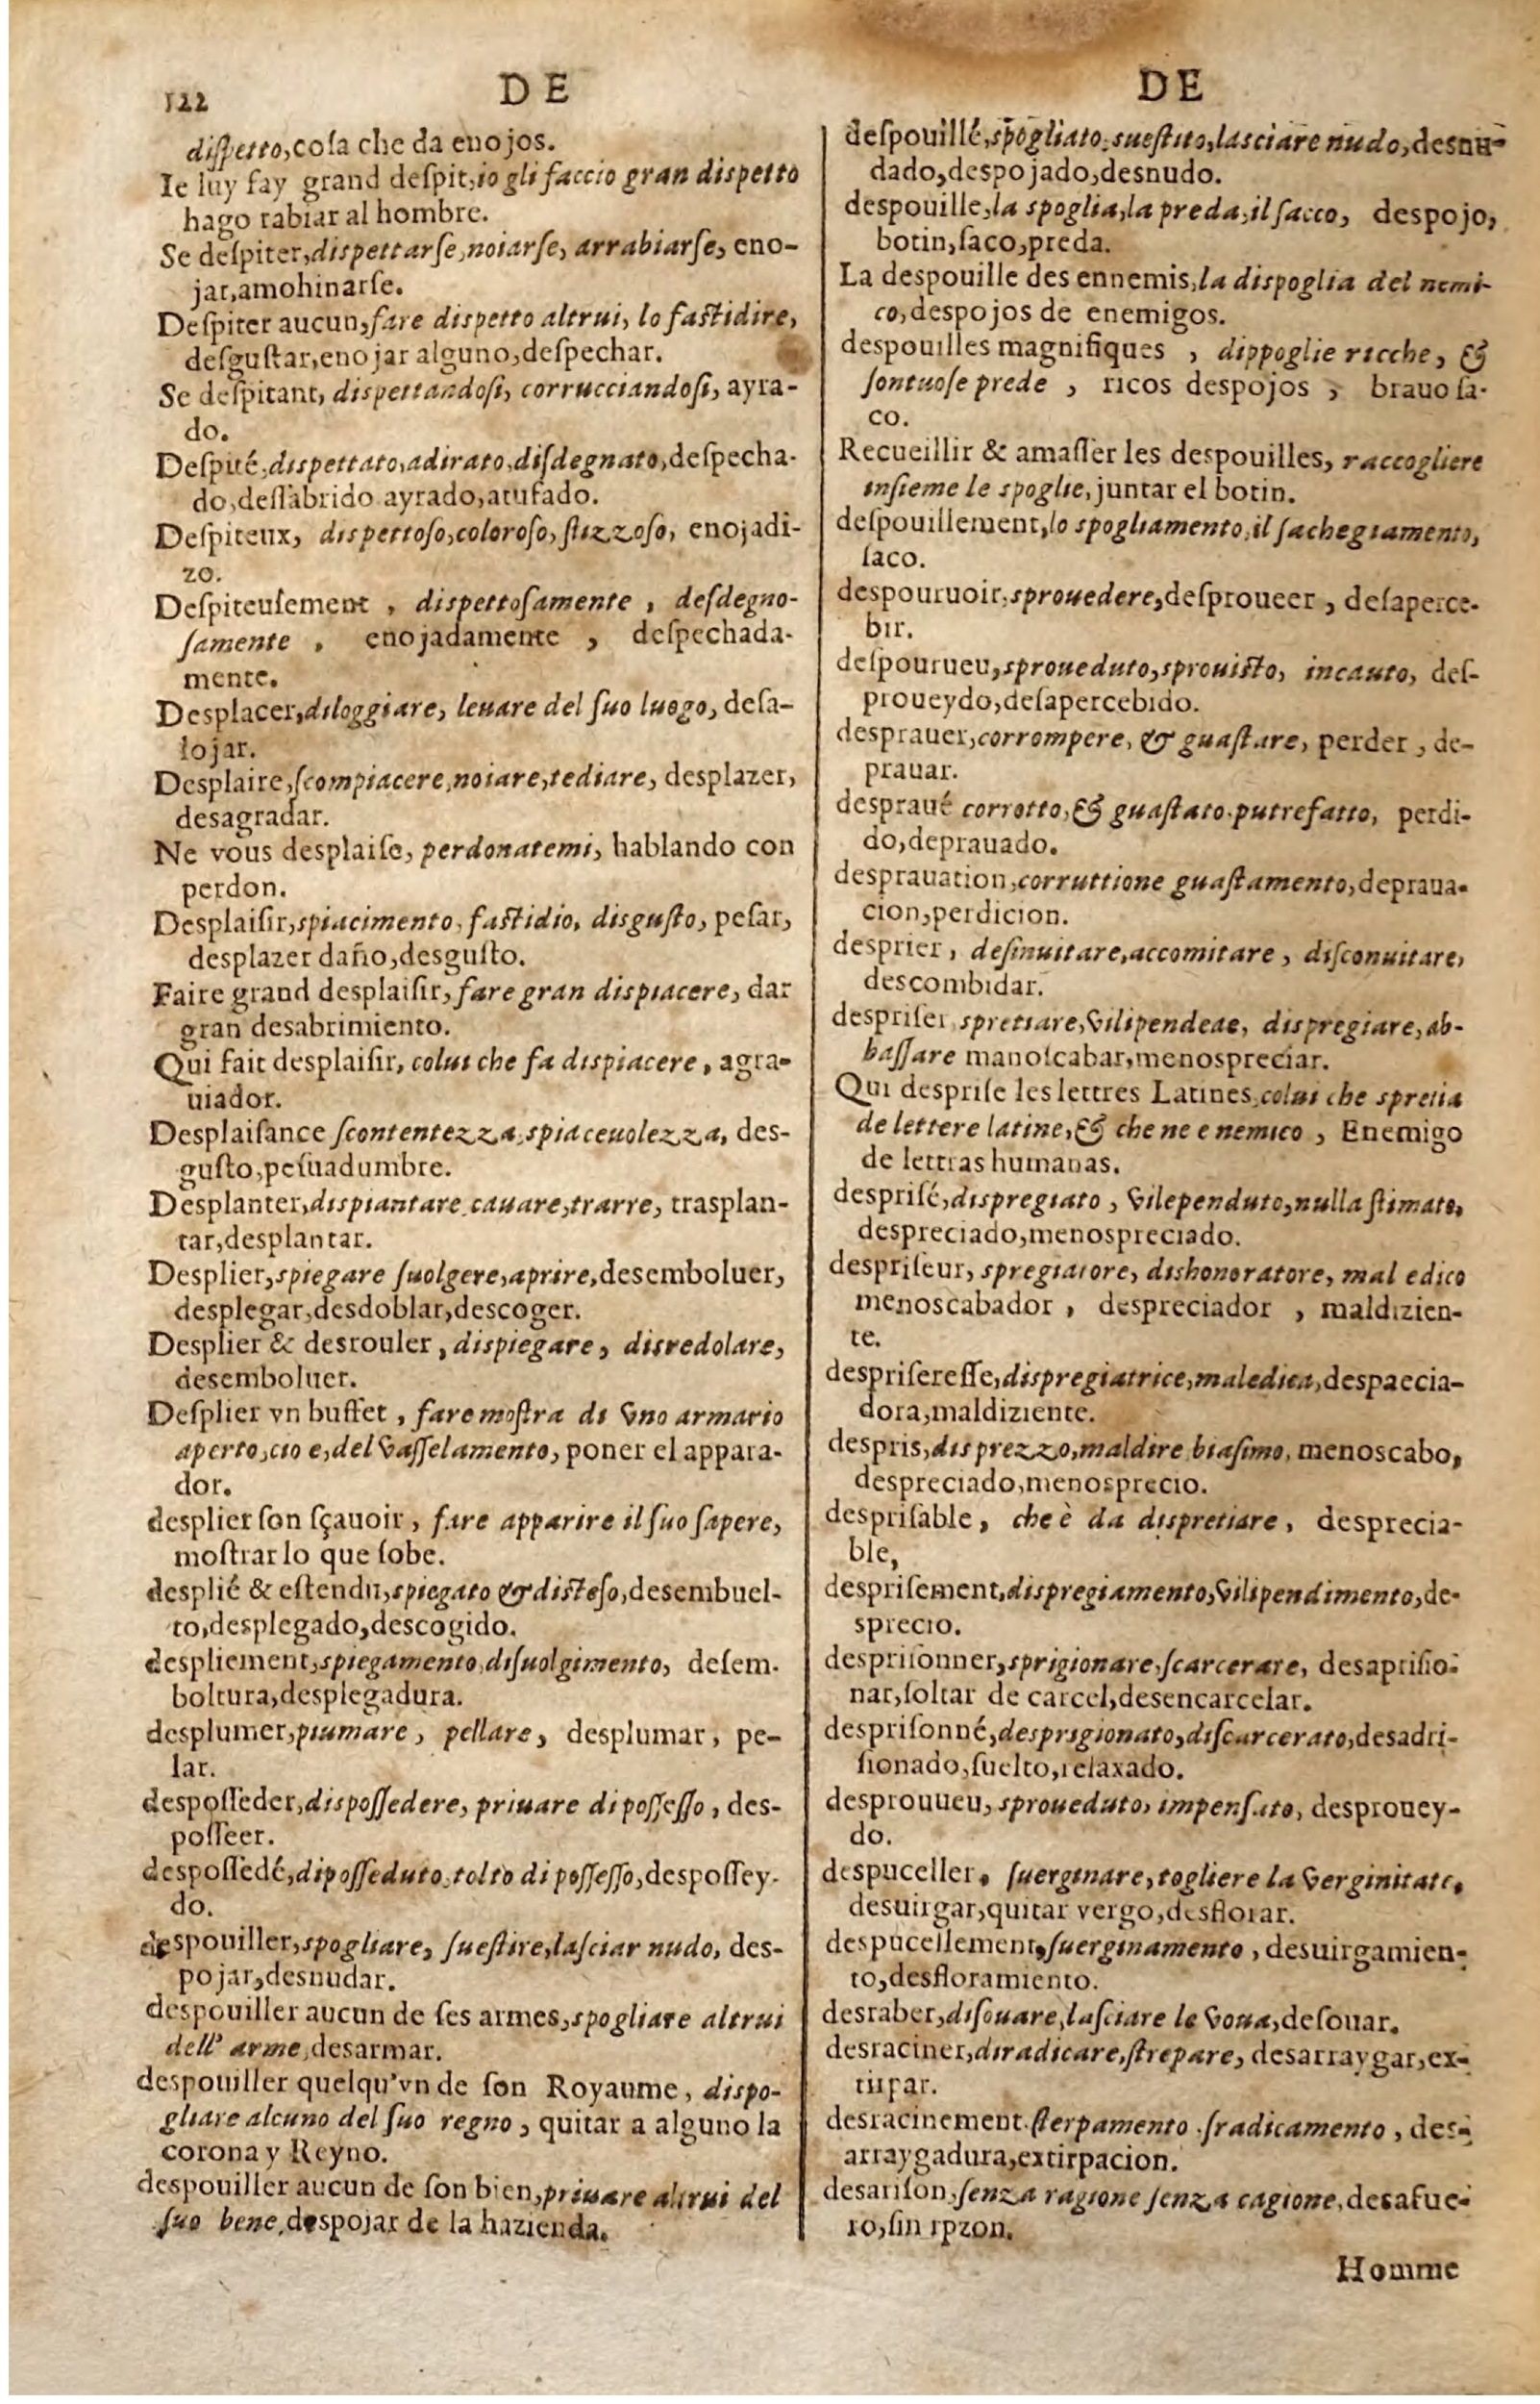 122
DE
diſpetto,coſa che da enojos.
Ie luy fay grand deſpit,io gli faccio gran dispetto
hago rabiar al hombre.
Se deſpiter,dispettarſe,noiarſe, arrabiarſe, eno-
jar,amohinarſe.
Deſpiter aucun,fare dispetto altrui, lo faſtidire,
deſguſtar,enojar alguno,deſpechar.
Se deſpitant, dispettandoſi, corrucciandoſi, ayra-
do.
Deſpité,dispettato,adirato,diſdegnato,deſpecha-
do,deſſabrido ayrado,atufado.
Deſpiteux, dispettoſo,coloroſo,ſtizzoſo, enojadi-
zo.
Deſpiteuſement , dispettoſamente , deſdegno-
ſamente , enojadamente , deſpechada-
mente.
Desplacer,diloggiare, leuare del ſuo luogo, deſa-
lojar.
Desplaire,ſcompiacere,noiare,tediare, desplazer,
desagradar.
Ne vous desplaiſe, perdonatemi, hablando con
perdon.
Desplaiſir,spiacimento, faſtidio, disguſto, peſar,
desplazer daño,desguſto.
Faire grand desplaiſir,fare gran dispiacere, dar
gran desabrimiento.
Qui fait desplaiſir, colui che fa dispiacere, agra-
uiador.
Desplaiſance ſcontentezza,spiaceuolezza, des-
guſto,peſuadumbre.
Desplanter,dispiantare cauare,trarre, trasplan-
tar,desplantar.
Desplier,spiegare ſuolgere,aprire,desemboluer,
desplegar,desdoblar,descoger.
Desplier & desrouler, dispiegare, disredolare,
desemboluer.
Deſplier vn buffet, fare moſtra di vno armario
aperto,cio e,del vaſſelamento, poner el appara-
dor.
desplier ſon ſçauoir, fare apparire il ſuo ſapere,
moſtrar lo que ſobe.
desplié & eſtendu,spiegato & diſteſo,desembuel-
to,desplegado,descogido.
despliement,spiegamento,diſuolgimento, deſem-
boltura,desplegadura.
desplumer,piumare, pellare, desplumar, pe-
lar.
despoſſeder,dispoſſedere, priuare di poſſeſſo, des-
poſſeer.
despoſſedé,dipoſſeduto,tolto di poſſeſſo,despoſſey-
do.
despouiller,spogliare, ſueſtire,laſciar nudo, des-
pojar,desnudar.
despouiller aucun de ſes armes,spogliare altrui
dell' arme,desarmar.
despouiller quelqu'vn de ſon Royaume, dispo-
gliare alcuno del ſuo regno, quitar a alguno la
corona y Reyno.
despouiller aucun de ſon bien,priuare altrui del
ſuo bene,despojar de la hazienda.
DE
deſpouillé,spogliato,sueſtito,lasciare nudo,desnu-
dado,despojado,desnudo.
despouille,la spoglia,la preda,il ſacco, despojo,
botin,ſaco,preda.
La despouille des ennemis,la dispoglia del nemi-
co,despojos de enemigos.
despouilles magnifiques , dippoglie ricche, &
ſontuoſe prede , ricos despojos , brauo ſa-
co.
Recueillir & amaſſer les despouilles, raccogliere
inſieme le spoglie,juntar el botin.
deſpouillement,lo spogliamento,il ſachegiamento,
ſaco.
despouruoir,sprouedere,deſproueer, deſaperce-
bir.
deſpourueu,sproueduto,sprouiſto, incauto, deſ-
proueydo,deſapercebido.
desprauer,corrompere, & guaſtare, perder, de-
prauar.
despraué corrotto,& guaſtato.putrefatto, perdi-
do,deprauado.
desprauation,corruttione guaſtamento,depraua-
cion,perdicion.
desprier, deſinuitare,accomitare, diſconuitare,
descombidar.
despriſer,spretiare,vilipendeae, dispregiare,ab-
baſſare manoſcabar,menospreciar.
Qui despriſe les lettres Latines,colui che spretia
de lettere latine,& che ne e nemico, Enemigo
de lettras humanas.
despriſé,dispregiato, vilependuto,nulla ſtimato,
despreciado,menospreciado.
despriſeur, spregiatore, dishonoratore, mal edico
menoscabador , despreciador , maldizien-
te.
despriſereſſe,dispregiatrice,maledica,despaecia-
dora,maldiziente.
despris,disprezzo,maldire biaſimo, menoscabo,
despreciado,menosprecio.
despriſable, che è da dispretiare, desprecia-
ble,
despriſement,dispregiamento,vilipendimento,de-
sprecio.
despriſonner,sprigionare,ſcarcerare, desapriſio-
nar,ſoltar de carcel,desencarcelar.
despriſonné,desprigionato,diſcarcerato,desadri-
ſionado,ſuelto,relaxado.
desprouueu, sproueduto, impenſato, desprouey-
do.
despuceller, ſuerginare,togliere la verginitate,
desuirgar,quitar vergo,desflorar.
despucellement,ſuerginamento, desuirgamien-
to,desfloramiento.
desraber,diſouare,laſciare le voua,deſouar.
desraciner,diradicare,ſtrepare, desarraygar,ex-
tirpar.
desracinement.ſterpamento.ſradicamento, des-
arraygadura,extirpacion.
desariſon,ſenza ragione ſenza cagione,desafue-
ro,ſin rpzon.
Homme